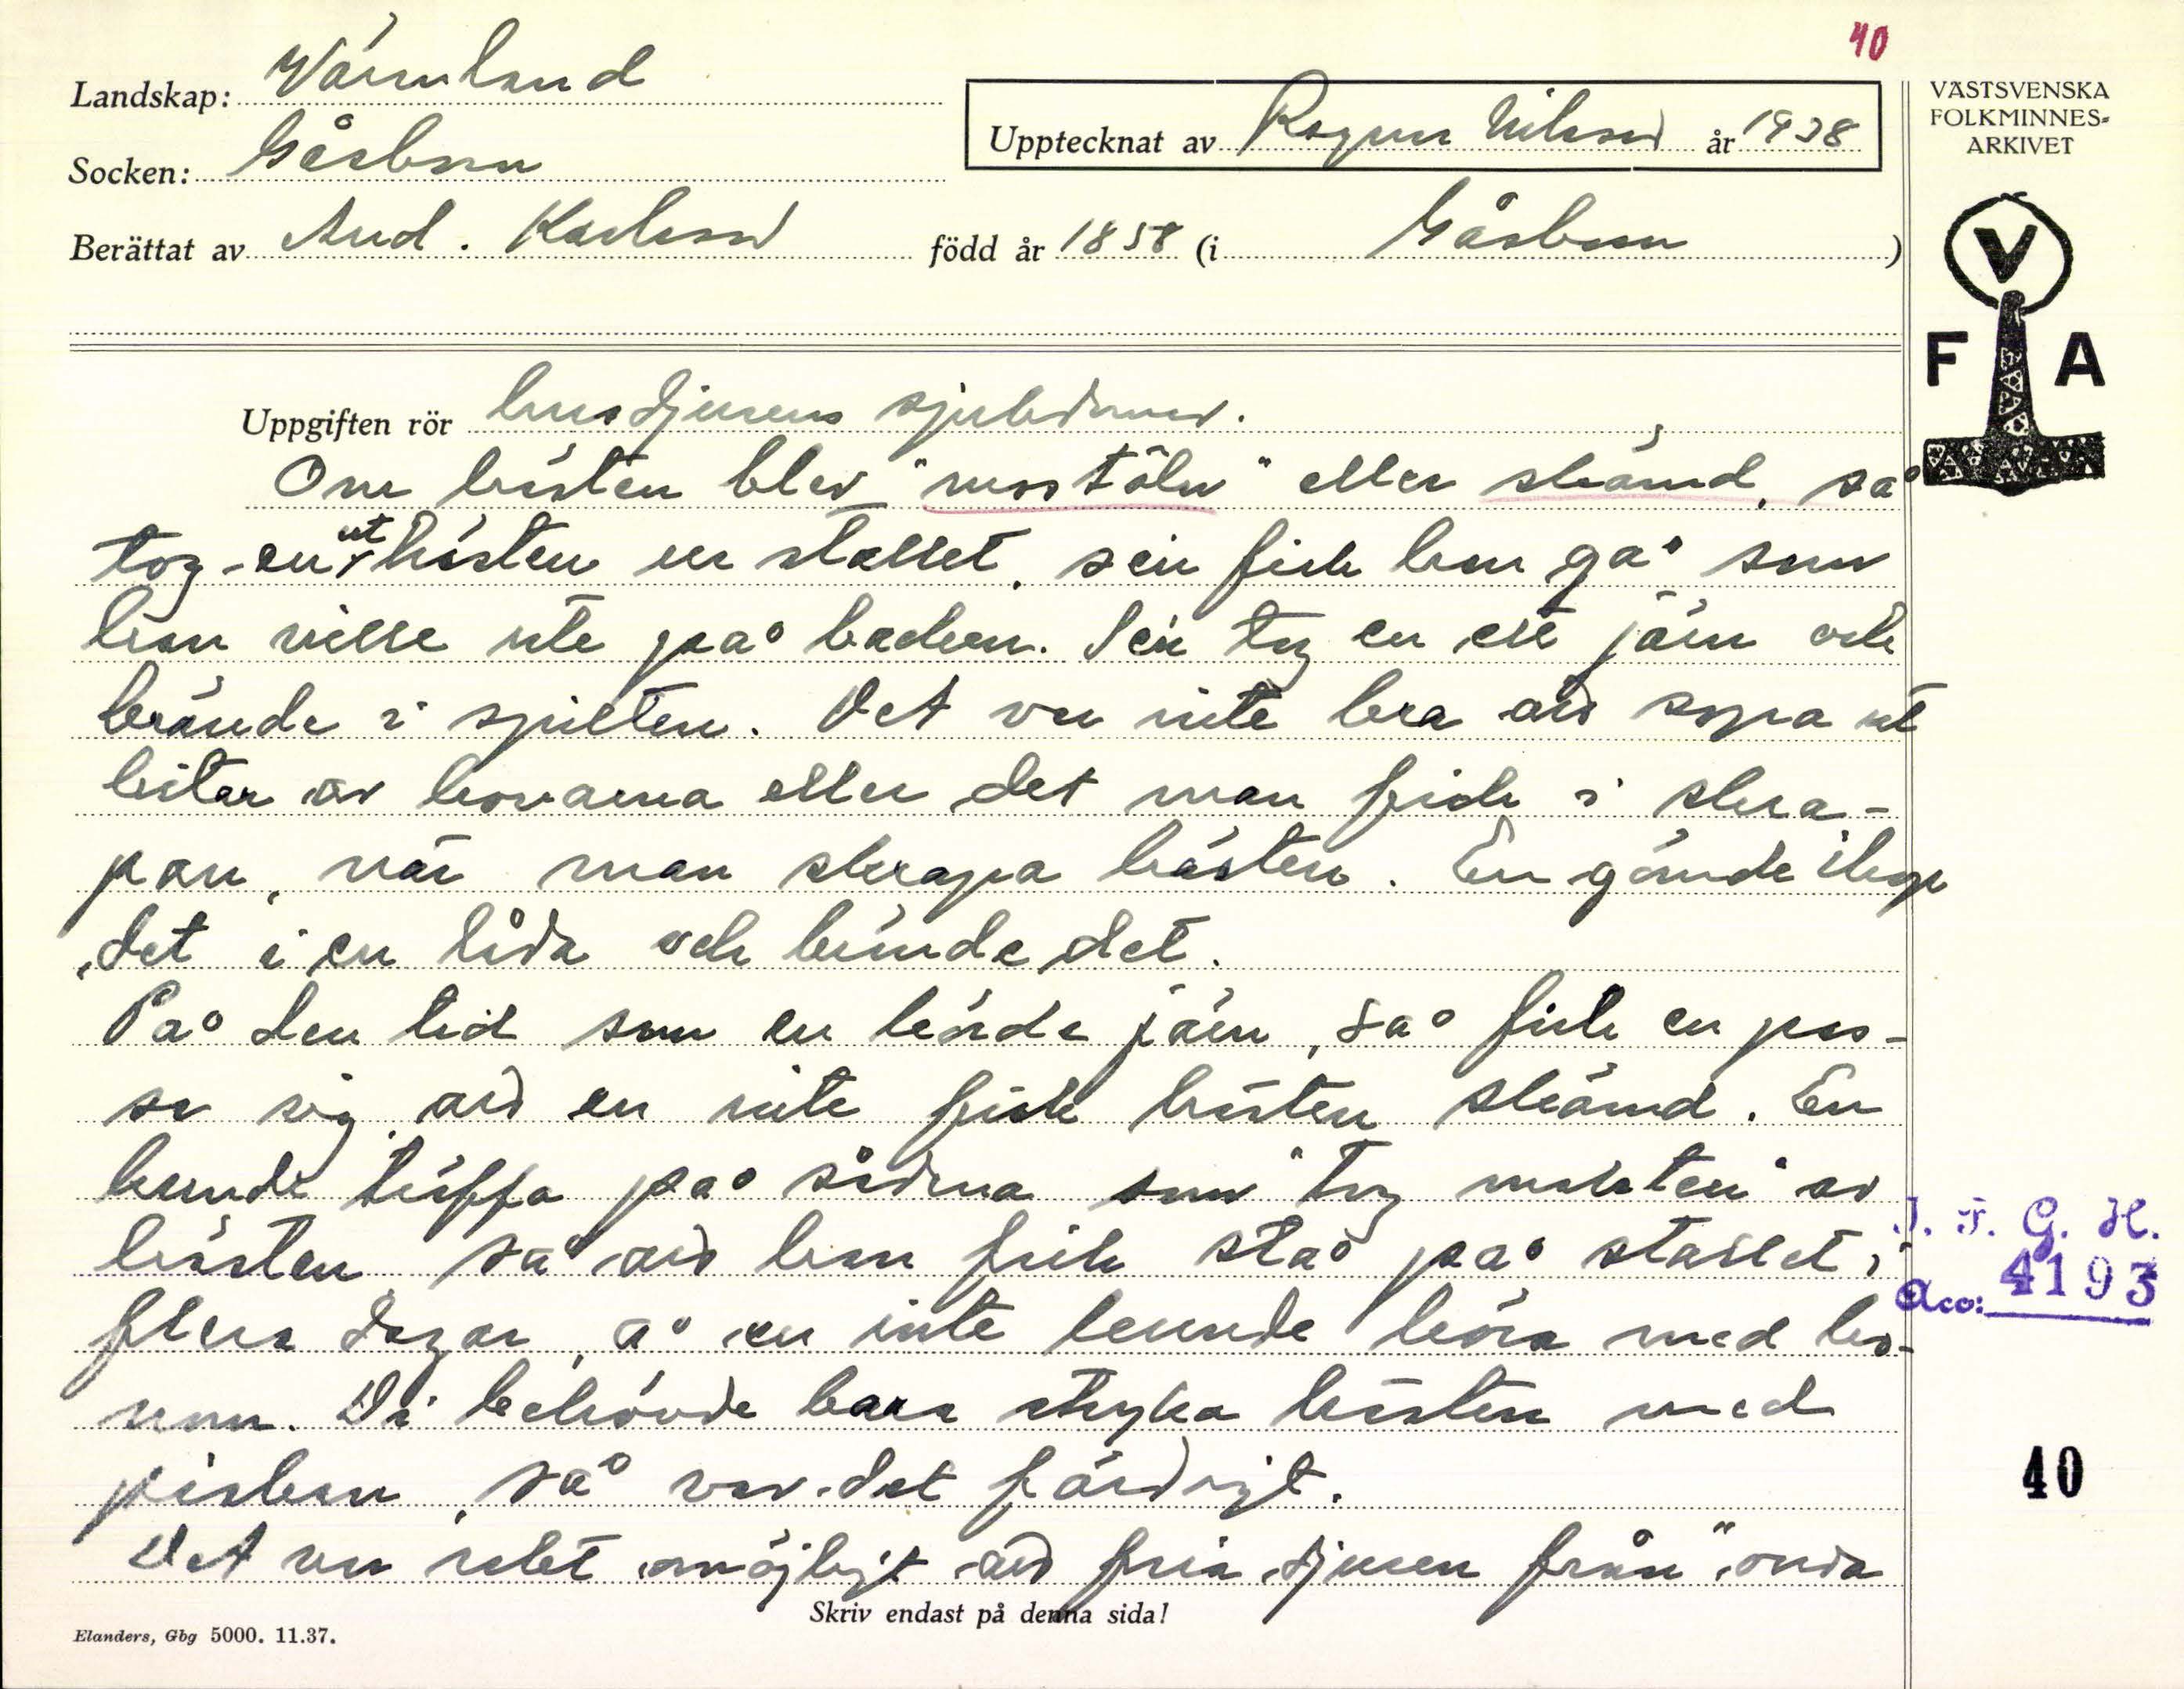 40
Landskap: Värmland
Socken: Gåsborn
Upptecknat av Ragnar Nilsson år 1938
Berättat av And. Karlsson född år 1858 (i Gåsborn)
VÄSTSVENSKA
FOLKMINNES-
ARKIVET
V
F A
Uppgiften rör husdjurens sjukdomar.
Om hästen blev "mosstöln" eller skrämd, så
tog-en ut hästen ur stallet, sen fick han gå som
han ville ute på backen. Sen tog en ett järn och
brände i spilten. Det var inte bra att sopa ut
bitar av hovarna eller det man fick i skra-
pan, när man skrapa hästen. En gömde ihop
det i en låda och brände det.
På den tid som en körde järn, så fick en pas-
sa sig att en inte fick hästen skrämd. En
kunde träffa på sådna som "tog musten" av
hästen så att han fick stå på stallet i
flera dagar, å en inte kunde köra med ho-
nom. Di behövde bara stryka hästen med
piskan, så var det färdigt.
Det var rakt omöjligt att fria djuren från "onda
I. F. G. H.
Acc: 4193
40
Skriv endast på denna sida!
Elanders, Gbg 5000. 11.37.